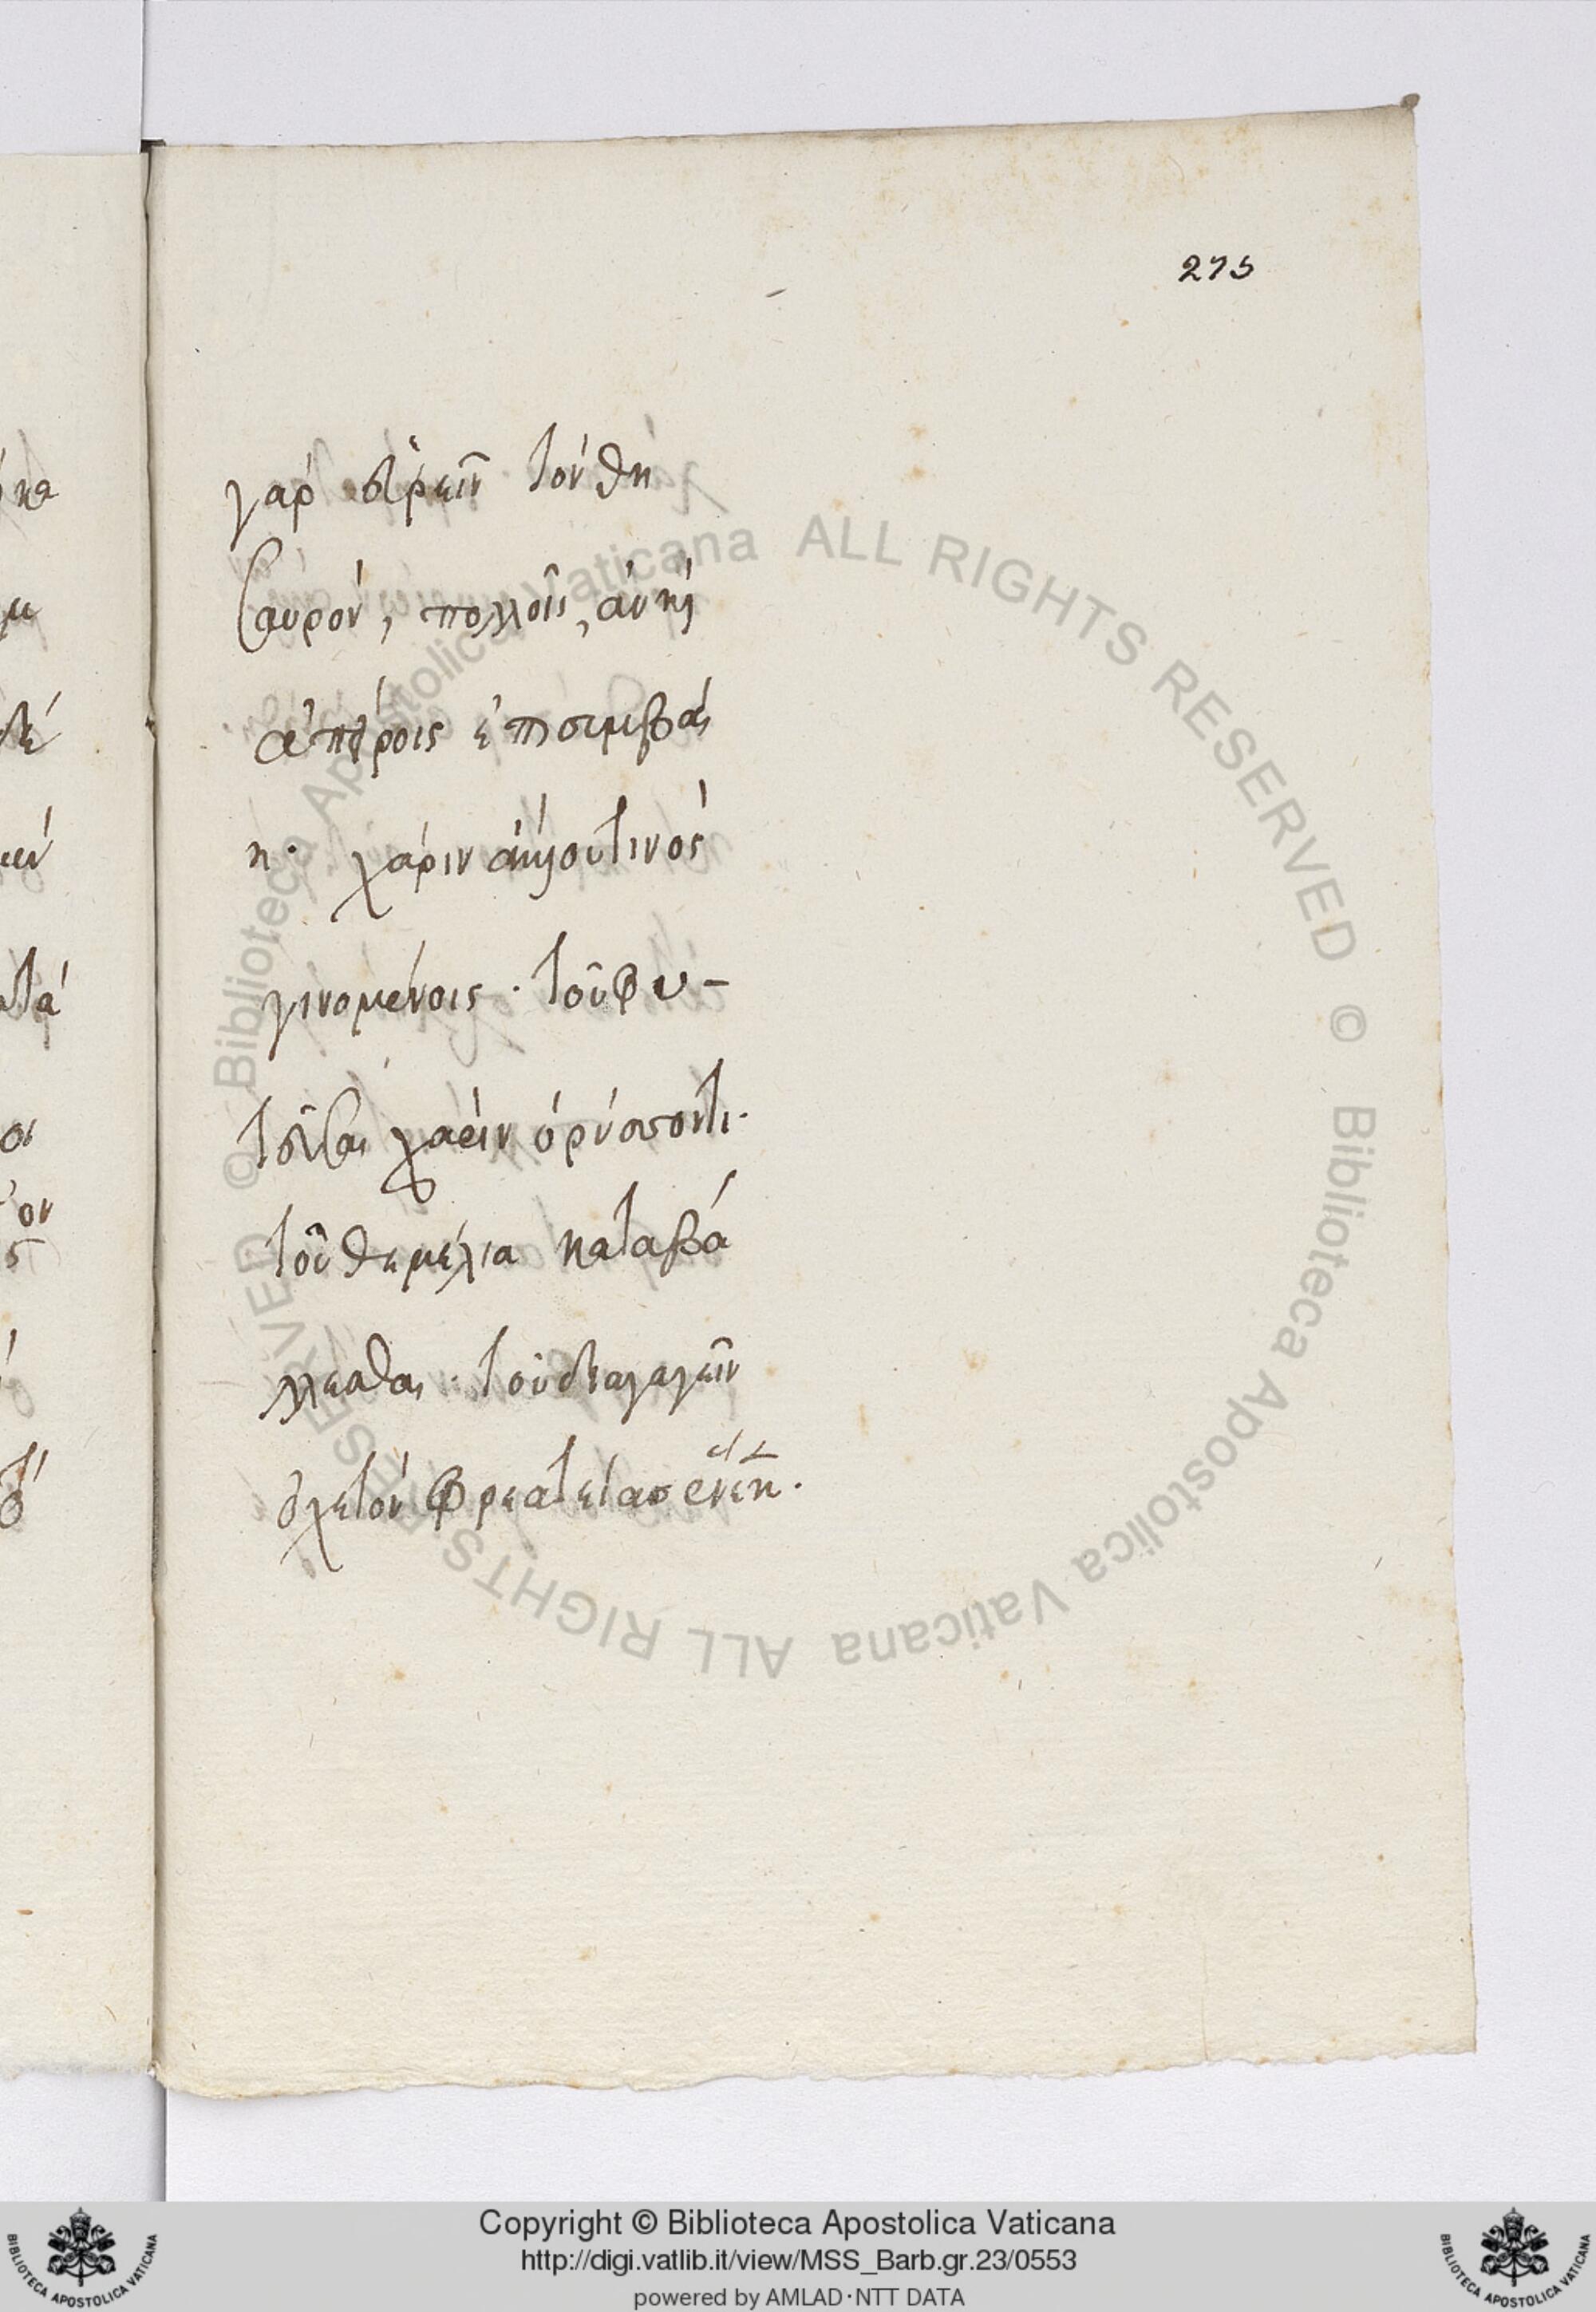 275
γαρ εὑρεῖν τὸν θη
σαυρόν, πολλοῖς, ἀνη
ἀπείροις ἐπισυμβαί
η· χάριν ἄλλου τινὸς
γινομένοις· τοῦ φυ-
τεῦσαι χάριν ὀρύσσοντι·
τοῦ θεμέλια καταβά
λλεσθαι· τοῦ διαγαγεῖν
ὀχετὸν φρεατείας ἕνεκ.
© Biblioteca Apostolica Vaticana ALL RIGHTS RESERVED © Biblioteca Apostolica Vaticana ALL RIGHTS RESERVED
Copyright © Biblioteca Apostolica Vaticana
http://digi.vatlib.it/view/MSS_Barb.gr.23/0553
powered by AMLAD·NTT DATA
BIBLIOTECA APOSTOLICA VATICANA
BIBLIOTECA APOSTOLICA VATICANA